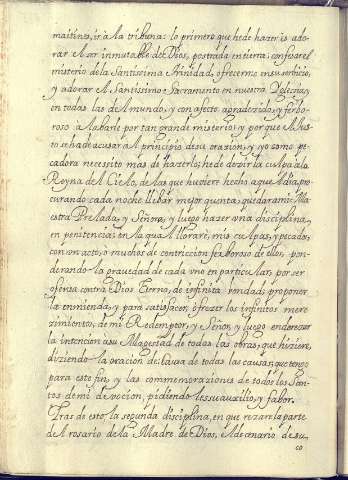 maitines, ir à la tribuna: lo primero que he de hazer es ado-
rar el ser inmutable de Dios, postrada en tierra: confesar el
misterio de la Santissima Trinidad, ofrecerme en su serbicio,
y adorar el Santissimo Sacramento en nuestra Yglesia, y
en todas las del mundo, y con afecto agradezido, y ferbo-
roso alabarle por tan grande misterio: y porque el Jus-
to se ha de acusar al principio de su oraxion, y yo como pe-
cadora necessito mas de hazerlo; he de dezir la culpa à la
Reyna del Cielo, de las que hubiere hecho aquel dia, pro-
curando cada noche llebar mejor quenta, que dara mi Ma-
estra Prelada, y Señora, y luego hazer una disciplina,
en penitencia: en la qual lloraré, mis culpas, y pecados,
con un acto, o muchos de contriccion ferboroso de ellos, pon-
derando la gravedad de cada uno en particular, por ser
ofensa contra Dios Eterno, de infinita bondad; proponer
la enmienda, y para satisfacer, ofrezer los infinitos mere
zimientos, de mi Redemptor, y Señor, y luego enderezar
la intencion a su Magestad de todas las obras, que hiziere,
diziendo la oracion de: Causa de todas las causas, que tengo
para este fin, y las commemoraziones de todos los San-
tos de mi deuocion, pidiendo les su auxilio, y fabor.
Tras de esto la segunda disciplina, en que rezare la parte
del rosario de la Madre de Dios, el de zenario de su
co